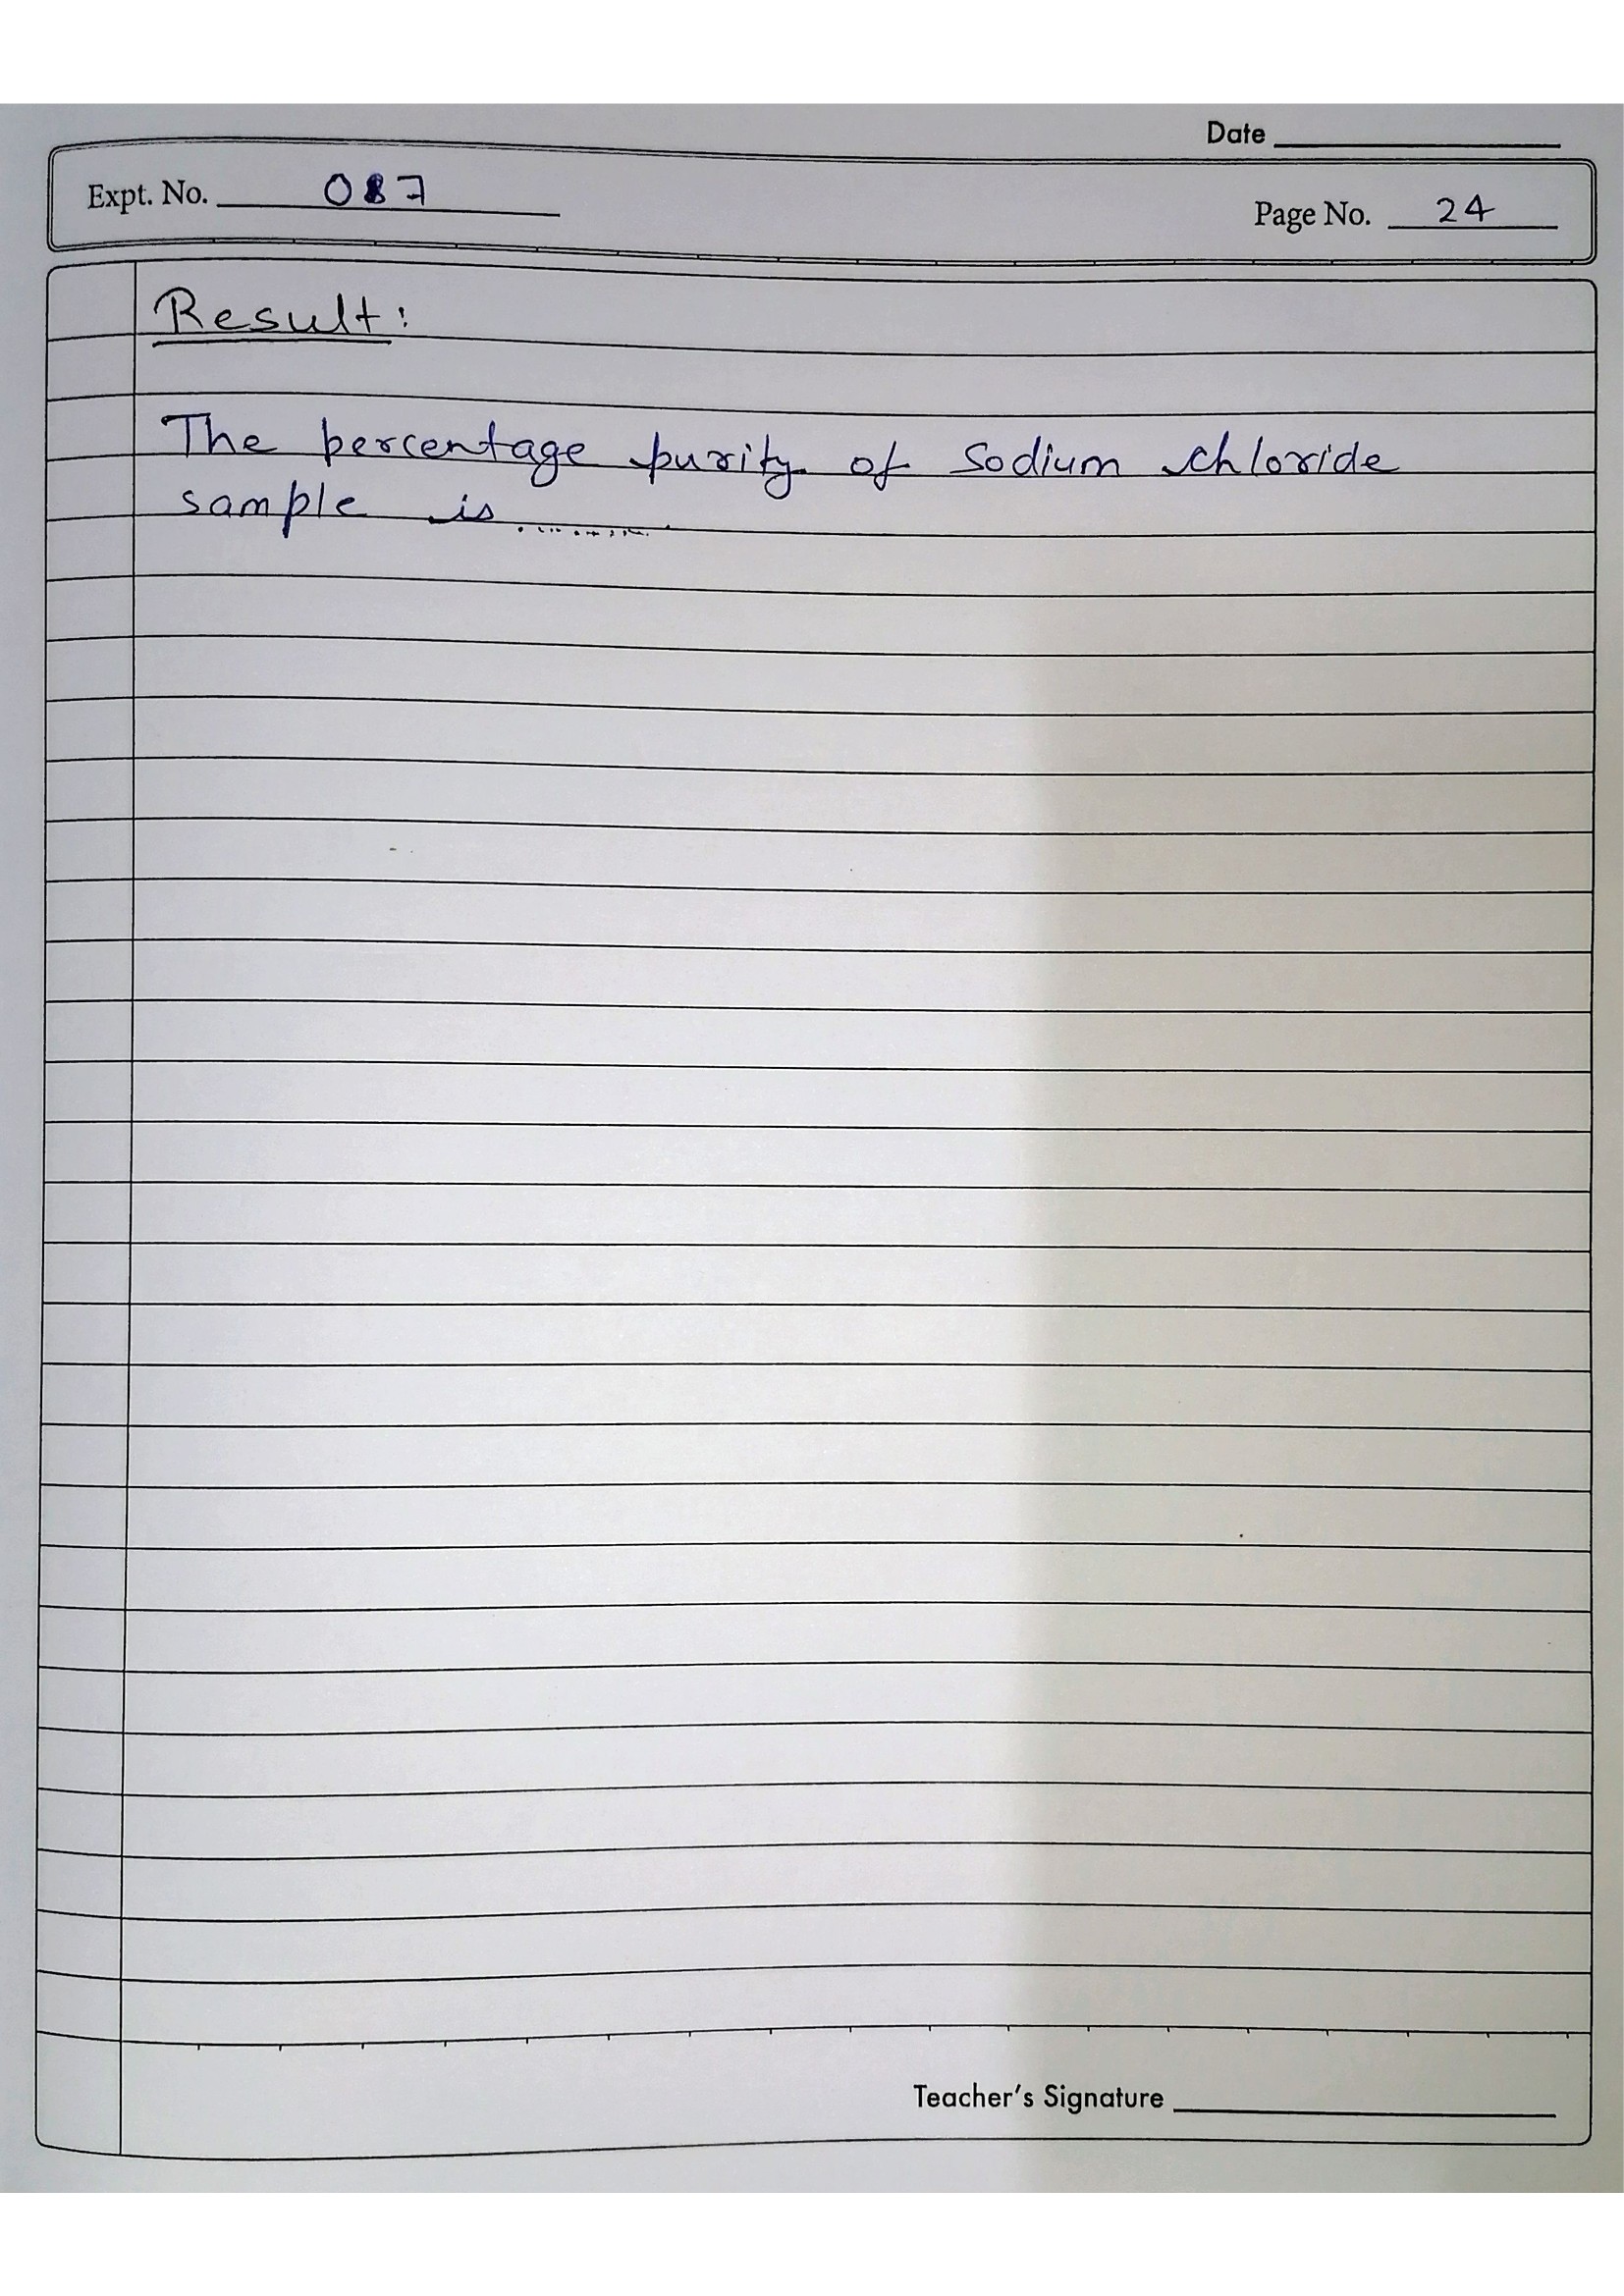 Date
Expt. No. 087
Page No. 24
Result:
The percentage purity of Sodium chloride
sample is ............
Teacher's Signature